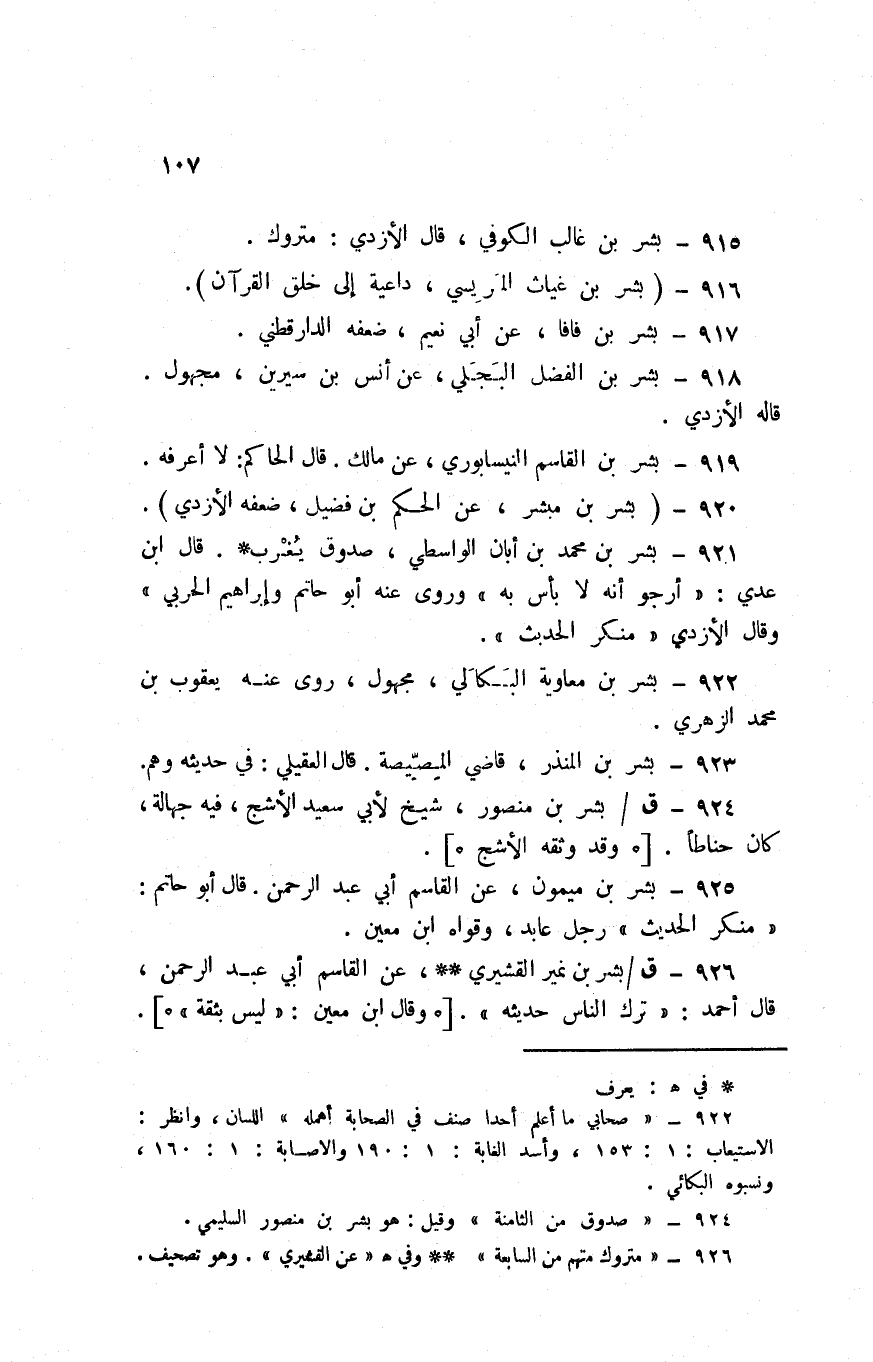 ١٠٧
٩١٥ – بشر بن غالب الكوفي ، قال الأزدي : متروك .
٩١٦ – ( بشر بن غياث المَرِيسي ، داعية إلى خلق القرآن ).
٩١٧ – بشر بن فافا ، عن أبي نعيم ، ضعفه الدارقطني .
٩١٨ – بشر بن الفضل البَجَلي ، عن أنس بن سيرين ، مجهول .
قاله الأزدي .
٩١٩ – بشر بن القاسم النيسابوري ، عن مالك . قال الحاكم: لا أعرفه .
٩٢٠ – ( بشر بن مبشر ، عن الحكم بن فضيل ، ضعفه الأزدي ) .
٩٢١ – بشر بن محمد بن أبان الواسطي ، صدوق يُغْرب* . قال ابن
عدي : « أرجو أنه لا بأس به » وروى عنه أبو حاتم وإبراهيم الحربي »
وقال الأزدي « منكر الحديث » .
٩٢٢ – بشر بن معاوية البَكَالي ، مجهول ، روى عنه يعقوب بن
محمد الزهري .
٩٢٣ – بشر بن المنذر ، قاضي المِصِّيصة . قال العقيلي : في حديثه وهم.
٩٢٤ – ق / بشر بن منصور ، شيخ لأبي سعيد الأشج ، فيه جهالة ،
كان حناطاً . [٥ وقد وثقه الأشج ٥] .
٩٢٥ – بشر بن ميمون ، عن القاسم أبي عبد الرحمن . قال أبو حاتم :
« منكر الحديث » رجل عابد ، وقواه ابن معين .
٩٢٦ – ق /بشر بن نمير القشيري ** ، عن القاسم أبي عبد الرحمن ،
قال أحمد : « ترك الناس حديثه » . [٥ وقال ابن معين : « ليس بثقة » ٥] .
* في ه : يعرف
٩٢٢ – « صحابي ما أعلم أحدا صنف في الصحابة أهمله » اللسان ، وانظر :
الاستيعاب : ١ : ١٥٣ ، وأسد الغابة : ١ : ١٩٠ والاصابة : ١ : ١٦٠ ،
ونسبوه البكائي .
٩٢٤ – « صدوق من الثامنة » وقيل : هو بشر بن منصور السليمي .
٩٢٦ – « متروك متهم من السابعة » ** وفي ه « عن القشيري » . وهو تصحيف .